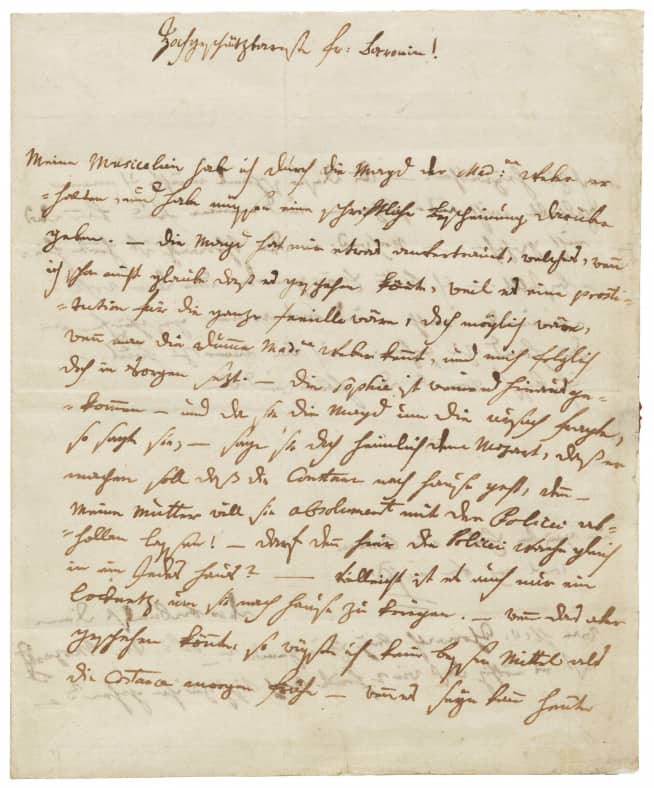 Hochgeschätzbarste fr: Baronin!
Meine Musicalien habe ich durch die Magd der Mad:me Weber er
=halten, und habe müssen eine schriftliche bescheinung darüber
geben. — die Magd hat mir etwas anvertrauet, welches, wenn
ich schon nicht glaube daß es geschehen könnte, weil es eine prosti=
=tution für die ganze famille wäre, doch möglich wäre,
wenn man die dumme Mad:me Weber kennt, und mich folglich
doch in Sorgen sezt. — die Sophie ist weinend hinausge=
=kommen — und da sie die Magd um die ursach fragte,
so sagte sie, — sage sie doch heimlich dem Mozart, daß er
machen soll daß die Constanz nach hause geht, denn —
meine Mutter will sie absolument mit der Policei ab=
=hollen lassen! — darf denn hier die Policei wache gleich
in ein Jedes haus? — Vielleicht ist es auch nur ein
locknetz um sie nach hause zu kriegen. — wenn das aber
geschehen könnte, so wüsste ich kein besseres Mittel als
die Costance morgen frühe — wenns seyn kann heute